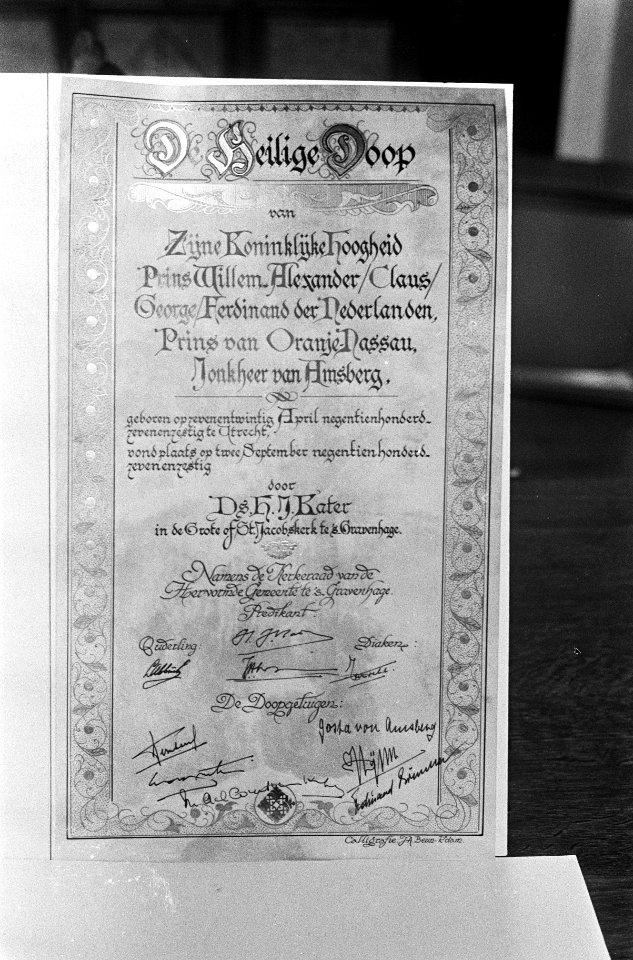 De Heilige Doop
van
Zijne Koninklijke Hoogheid
Prins Willem-Alexander/Claus/
George/Ferdinand der Nederlanden,
Prins van Oranje-Nassau,
Jonkheer van Amsberg,
geboren op zevenentwintig April negentienhonderd-
zevenenzestig te Utrecht,
vond plaats op twee September negentienhonderd-
zevenenzestig
door
Ds. H. J. Kater
in de Grote of St. Jacobskerk te 's Gravenhage.
Namens de Kerkeraad van de
Hervormde Gemeente te 's Gravenhage.
Predikant:
Ouderling:
Diaken:
De Doopgetuigen:
Gösta von Amsberg
Ferdinand
Calligrafie